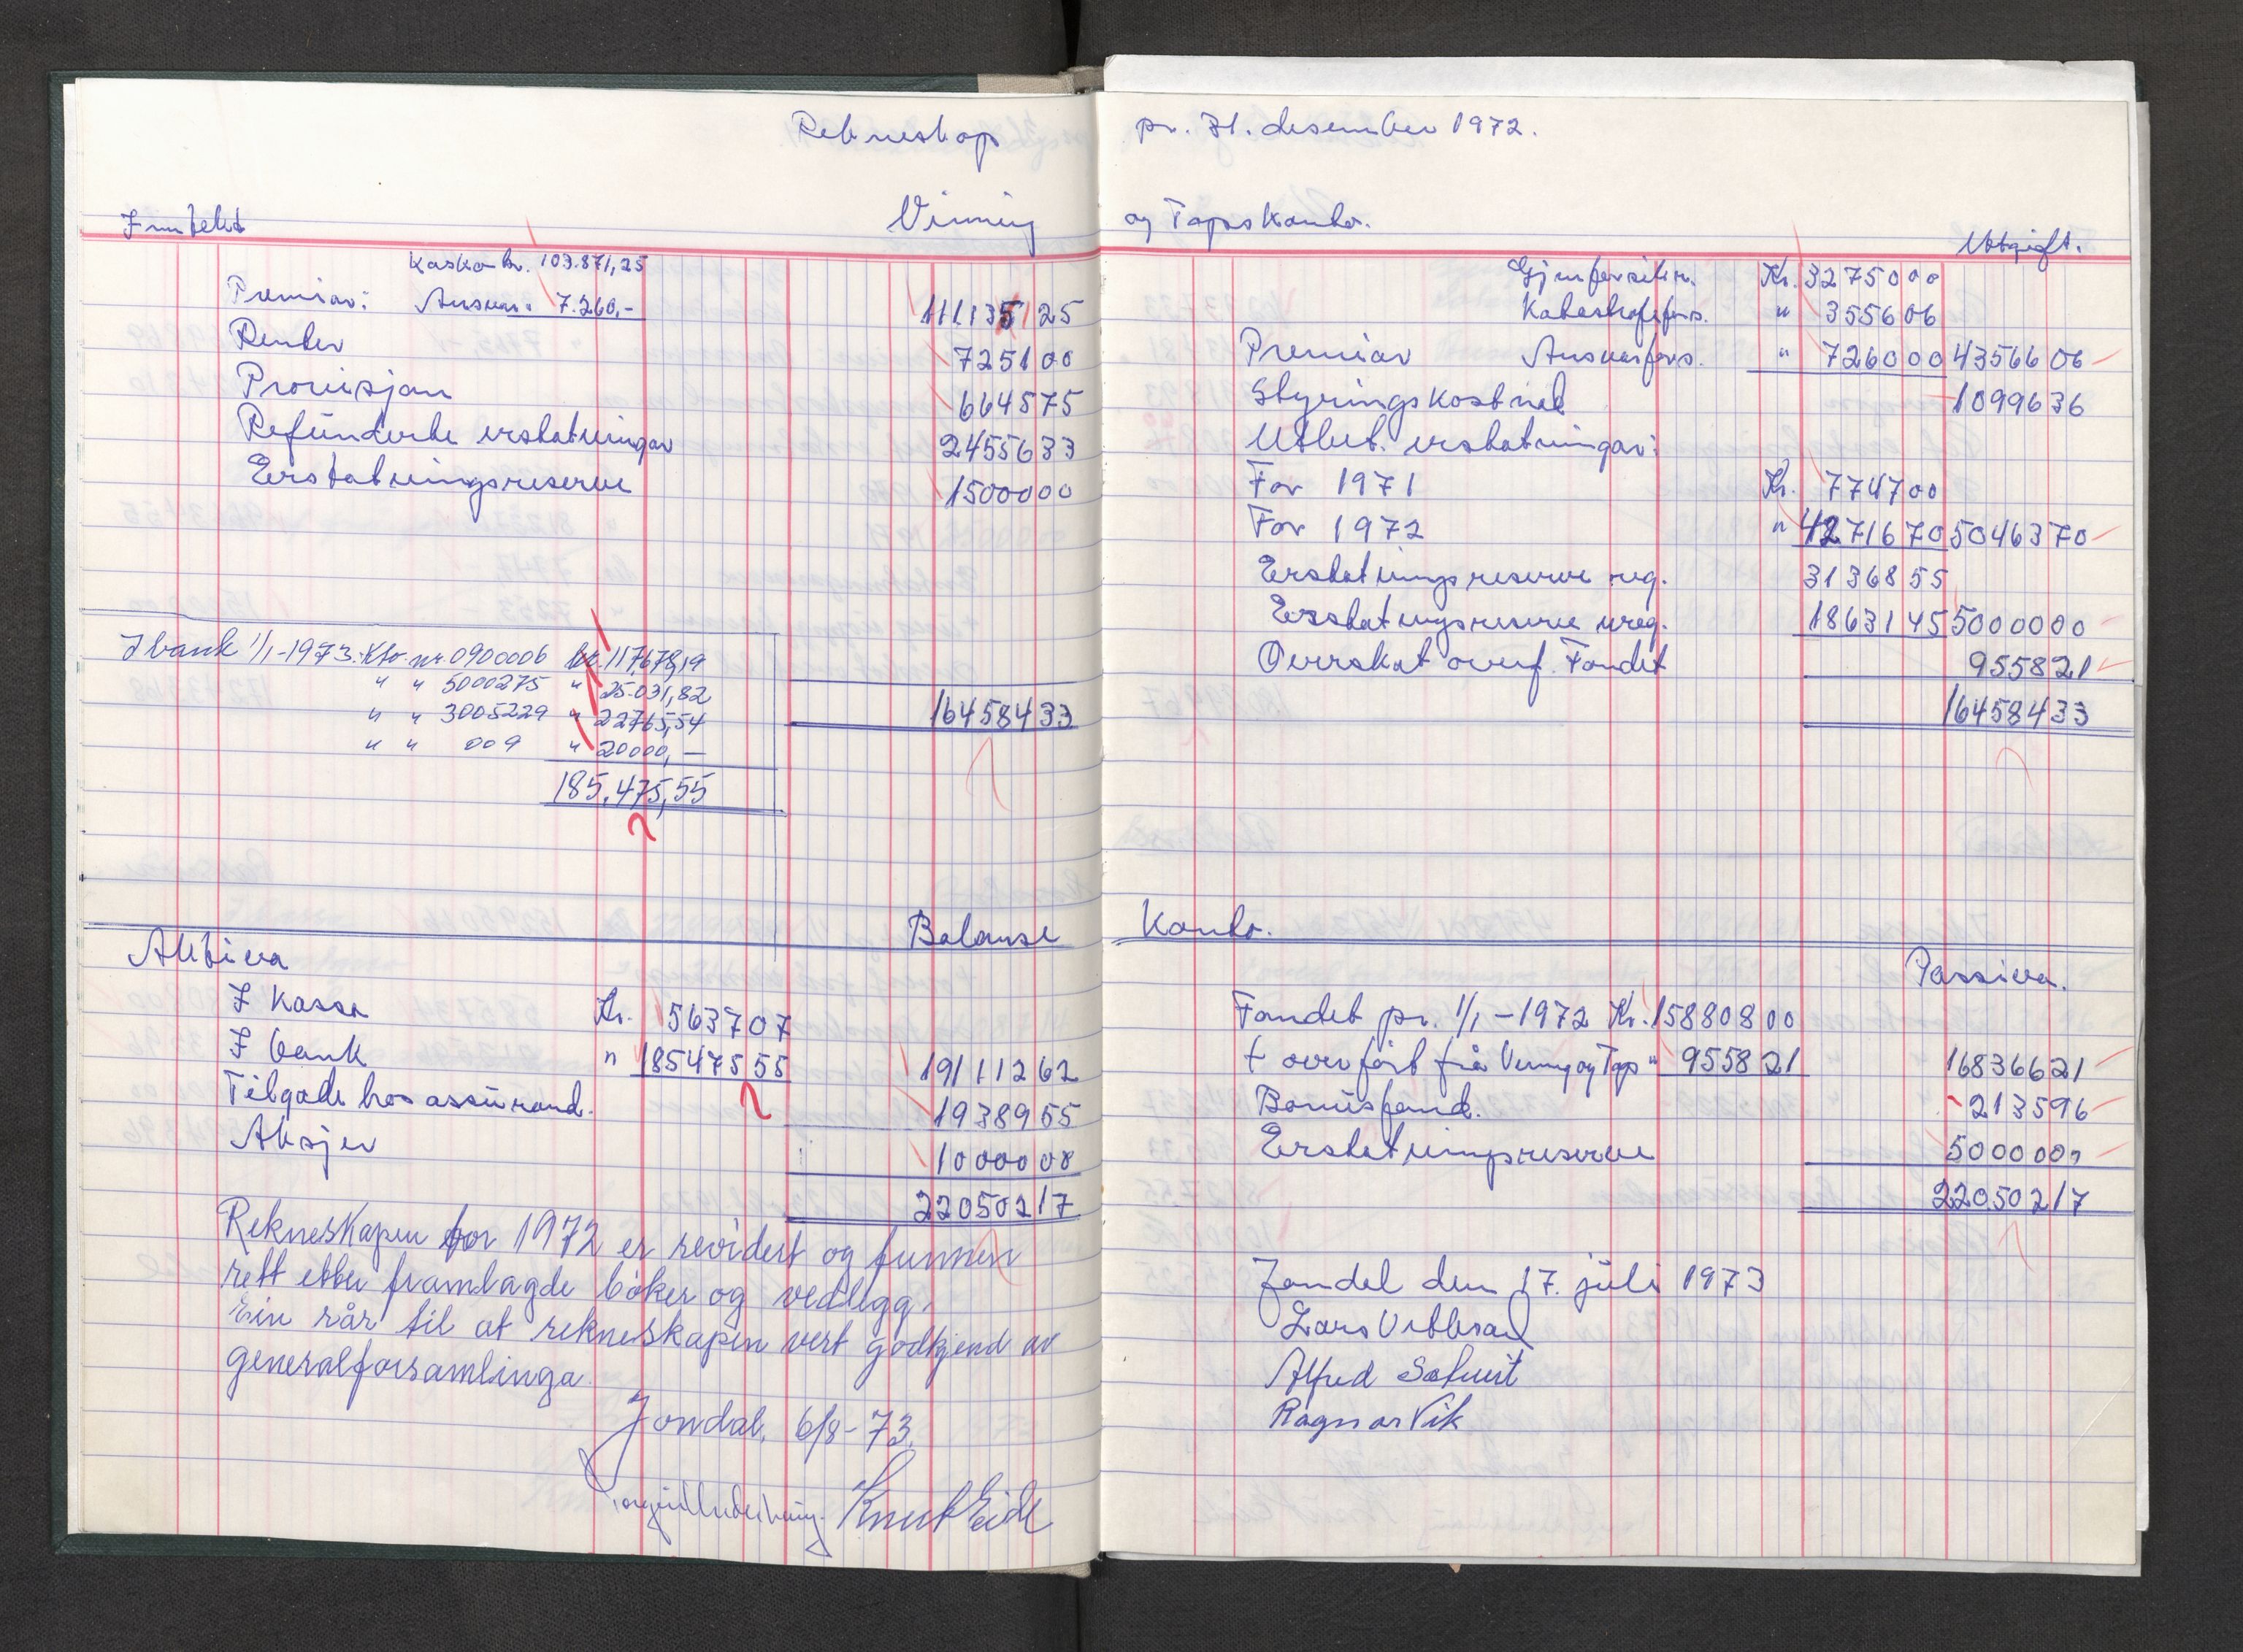 Rekneskap pr. 31. desember 1972.
Inntekt Vinning og Tapskonto. Utgift.
Kasko kr. 103.871,25
Premiar: Ansvar " 7.260,- 111.131 25
Renter 7251 00
Provisjon 6645 75
Refunderte erstatningar 24556 33
Erstatningsreserve 15000 00
I bank 1/1-1973. Kto nr. 0900006 kr. 117.678,19
" " 5000275 " 25.031,82
" " 3005229 " 22765,54
" " 009 " 20000,—
185.475,55
164584 33
Gjenforsikr. Kr. 32750 00
Katastrofefors. " 3556 06
Premiar Ansvarsfors. " 7260 00 43566 06
Styringskostnad 10996 36
Utbet. erstatningar:
For 1971 Kr. 7747 00
For 1972 " 42716 70 50463 70
Erstatningsreserve reg. 31368 55
Erstatningsreserve ureg. 18631 45 50000 00
Overskot overf. Fondet 9558 21
164584 33
Balanse Konto.
Aktiva
I Kassa Kr. 5637 07
I bank " 185475 55 191112 62
Tilgode hos assurand. 19389 55
Aksjer 10000 00
220502 17
Rekneskapen for 1972 er revidert og funnen
rett etter framlagde bøker og vedlegg.
Ein rår til at rekneskapen vert godkjend av
generalforsamlinga.
Jondal, 6/8-73.
Knut Eide
Passiva.
Fondet pr. 1/1-1972 Kr. 158808 00
+ overført frå Vinning og Tap " 9558 21 168366 21
Bonusfond. 2135 96
Erstatningsreserve 50000 00
220502 17
Jondal den 17. juli 1973
Lars
Alfred
Ragnar Vik